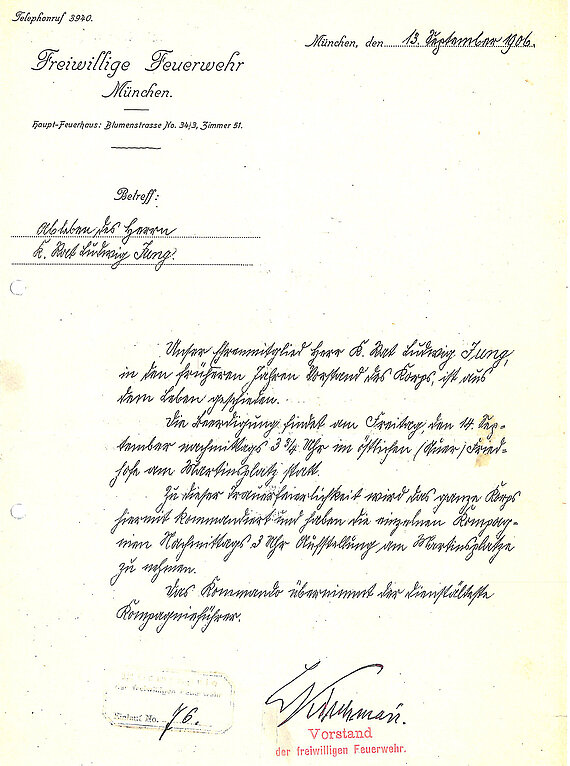 Telephonruf 3940.
München, den 13. September 1906.
Freiwillige Feuerwehr
München.
Haupt-Feuerhaus: Blumenstrasse No. 34/3, Zimmer 51.
Betreff:
Ableben des Herrn
K. Rat Ludwig Jung.
Unser Ehrenmitglied Herr K. Rat Ludwig Jung,
in den früheren Jahren Vorstand des Korps, ist aus
dem Leben geschieden.
Die Beerdigung findet am Freitag, den 14. Sep-
tember nachmittags 3 3/4 Uhr im östlichen (Auer) Fried-
hofe am Martinsplatz statt.
Zu dieser Trauerfeierlichkeit wird das ganze Korps
hiermit kommandiert und haben die einzelnen Kompag-
nien Nachmittags 3 Uhr Aufstellung am Martinsplatze
zu nehmen.
Das Kommando übernimmt der dienstälteste
Kompagnieführer.
der freiwilligen Feuerwehr
Einlauf No. 76.
Vorstand
der freiwilligen Feuerwehr.